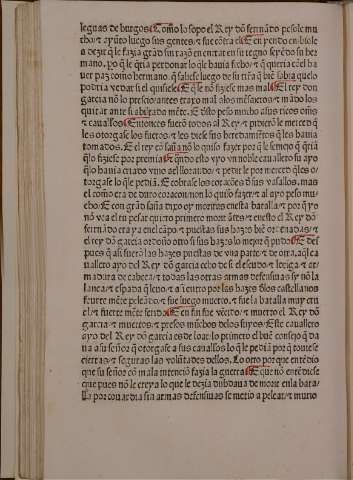 leguas de burgos Como lo sopo el Rey dõ fernãdo pesole mu
cho/ ⁊ ayũto luego sus gentes/ ⁊ fue cõtra el E en yendo enbiole
a dezir q̃ le fazia grãd sin razõ en entrar en su regno seyẽdo su her
mano. po q̃ le q̃ria perdonar lo q̃ le hauia fecho/ ⁊ q̃ queria cõel ha
uer paz como hermano. q̃ saliese luego de su trr̃a q̃ biẽ sabia quelo
podria vedar si el quisiese E q̃ se nõ fiziese mas mal El rey don
garcia nõ lo presciо antes trayo mal alos mẽsaieros ⁊ mãdo los
quitar ante si abiltada mẽte. E desto peso mucho asus ricos oms̃
⁊ cauallͦos Entonces fuerõ todos al Rey ⁊ pidierõ le merced q̃
les otorgase los fueros/ ⁊ les diese sus heredamiẽtos q̃ les hauia
tomados. E el rey cõ saña nõ lo quiso fazer por q̃ le semeio q̃ q̃riã
q̃ lo fiziese por premia E q̃ndo esto vyo vn noble cauallero su ayo
q̃ lo hauia criado vino ael llorando/ ⁊ pedir le por merced q̃ les o/
torgase lo q̃ le pediã. E cobrase los corações d̃ sus vasallos. mas
el como era de duro coraçon non lo quiso fazer/ ⁊ al ayo peso mu
cho. E con grãd saña dixo oy morires enesta batalla/ ⁊ por q̃ yo
nõ vea el tu pesar quiero primero morir ãtes/ ⁊ enesto el Rey dõ
fernãdo era ya enel cãpo/ ⁊ puestas sus hazes biẽ ordenadas/ ⁊
el rey dõ garcia ordeño otro si sus hazes lo mejor q̃ pudo E des
pues q̃ asi fuerõ las hazes puestas de vna parte/ ⁊ de otra, aq̃l ca
uallero ayo del Rey dõ garcia echo de si el escudo/ ⁊ loriga/ ⁊ ar
madura de cabeça/ ⁊ todas las otras armas defensiuas sy nõ la
lança/ ⁊ espada q̃ leuo/ ⁊ ayũtaro por las hazes d̃los castellanos
fuerte mẽte peleãdo/ ⁊ fue luego muerto. ⁊ fue la batalla muy cru
el/ ⁊ fuerte mẽte ferida En fin fue vẽcido/ ⁊ muerto el Rey dõ
garcia/ ⁊ muertos/ ⁊ presos muchos delos suyos/ Este cauallero
ayo del Rey dõ garcia es de loar. lo primero el buẽ consejo q̃ da
ua a su señor q̃ otorgase a sus cauallͦos lo q̃ le pediã por q̃ touiese
ciertas/ ⁊ seguras las volũtades dellos. Lo otro porque entẽdio
que su señor cõ mala intenciõ fazia la guerra E que nõ entẽdiese
que pues nõ le creya lo que le dezia dubdaua de morir en la bata/
lla por couardia sin armas defensiuas se metio a pelear/ ⁊ murio